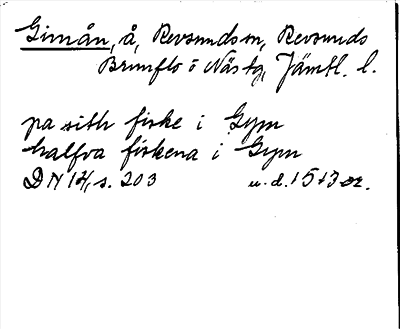 Gimån, å, Revsunds sn, Revsunds
Brunflo o Näs tg, Jämtl. l.
pa sith fiske i Gym
halfva fiskena i Gym
DN 14, s. 203 u.d. 1513